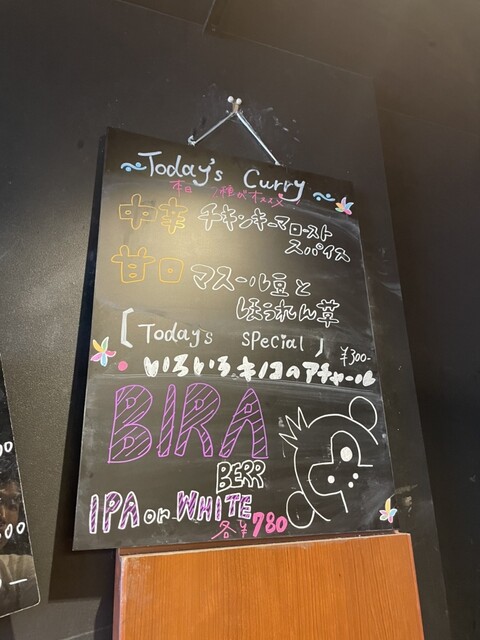 Today's Curry
本日 2種がオススメ!
中辛 チキンキーマロースト
スパイス
甘口 マスール豆と
ほうれん草
[Today's special]
¥300-
• いろいろキノコのアチャール
BIRA
BERR
IPA or WHITE
各¥780